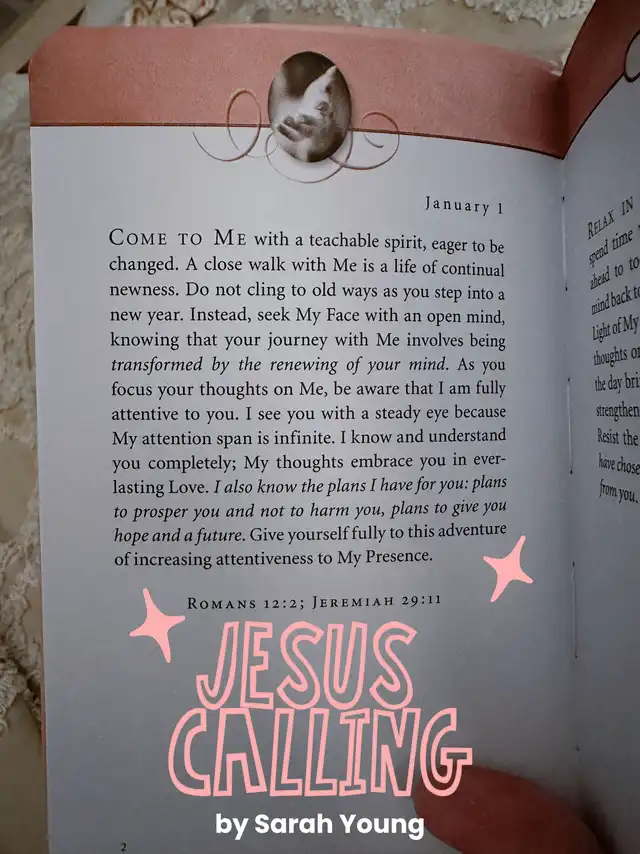 January 1
COME TO ME with a teachable spirit, eager to be
changed. A close walk with Me is a life of continual
newness. Do not cling to old ways as you step into a
new year. Instead, seek My Face with an open mind,
knowing that your journey with Me involves being
transformed by the renewing of your mind. As you
focus your thoughts on Me, be aware that I am fully
attentive to you. I see you with a steady eye because
My attention span is infinite. I know and understand
you completely; My thoughts embrace you in ever-
lasting Love. I also know the plans I have for you: plans
to prosper you and not to harm you, plans to give you
hope and a future. Give yourself fully to this adventure
of increasing attentiveness to My Presence.
ROMANS 12:2; JEREMIAH 29:11
JESUS
CALLING
by Sarah Young
2
RELAX IN
spend time
ahead to to
mind back to
Light of My
thoughts on
the day bri
strengthen
Resist the
have chose
from you.